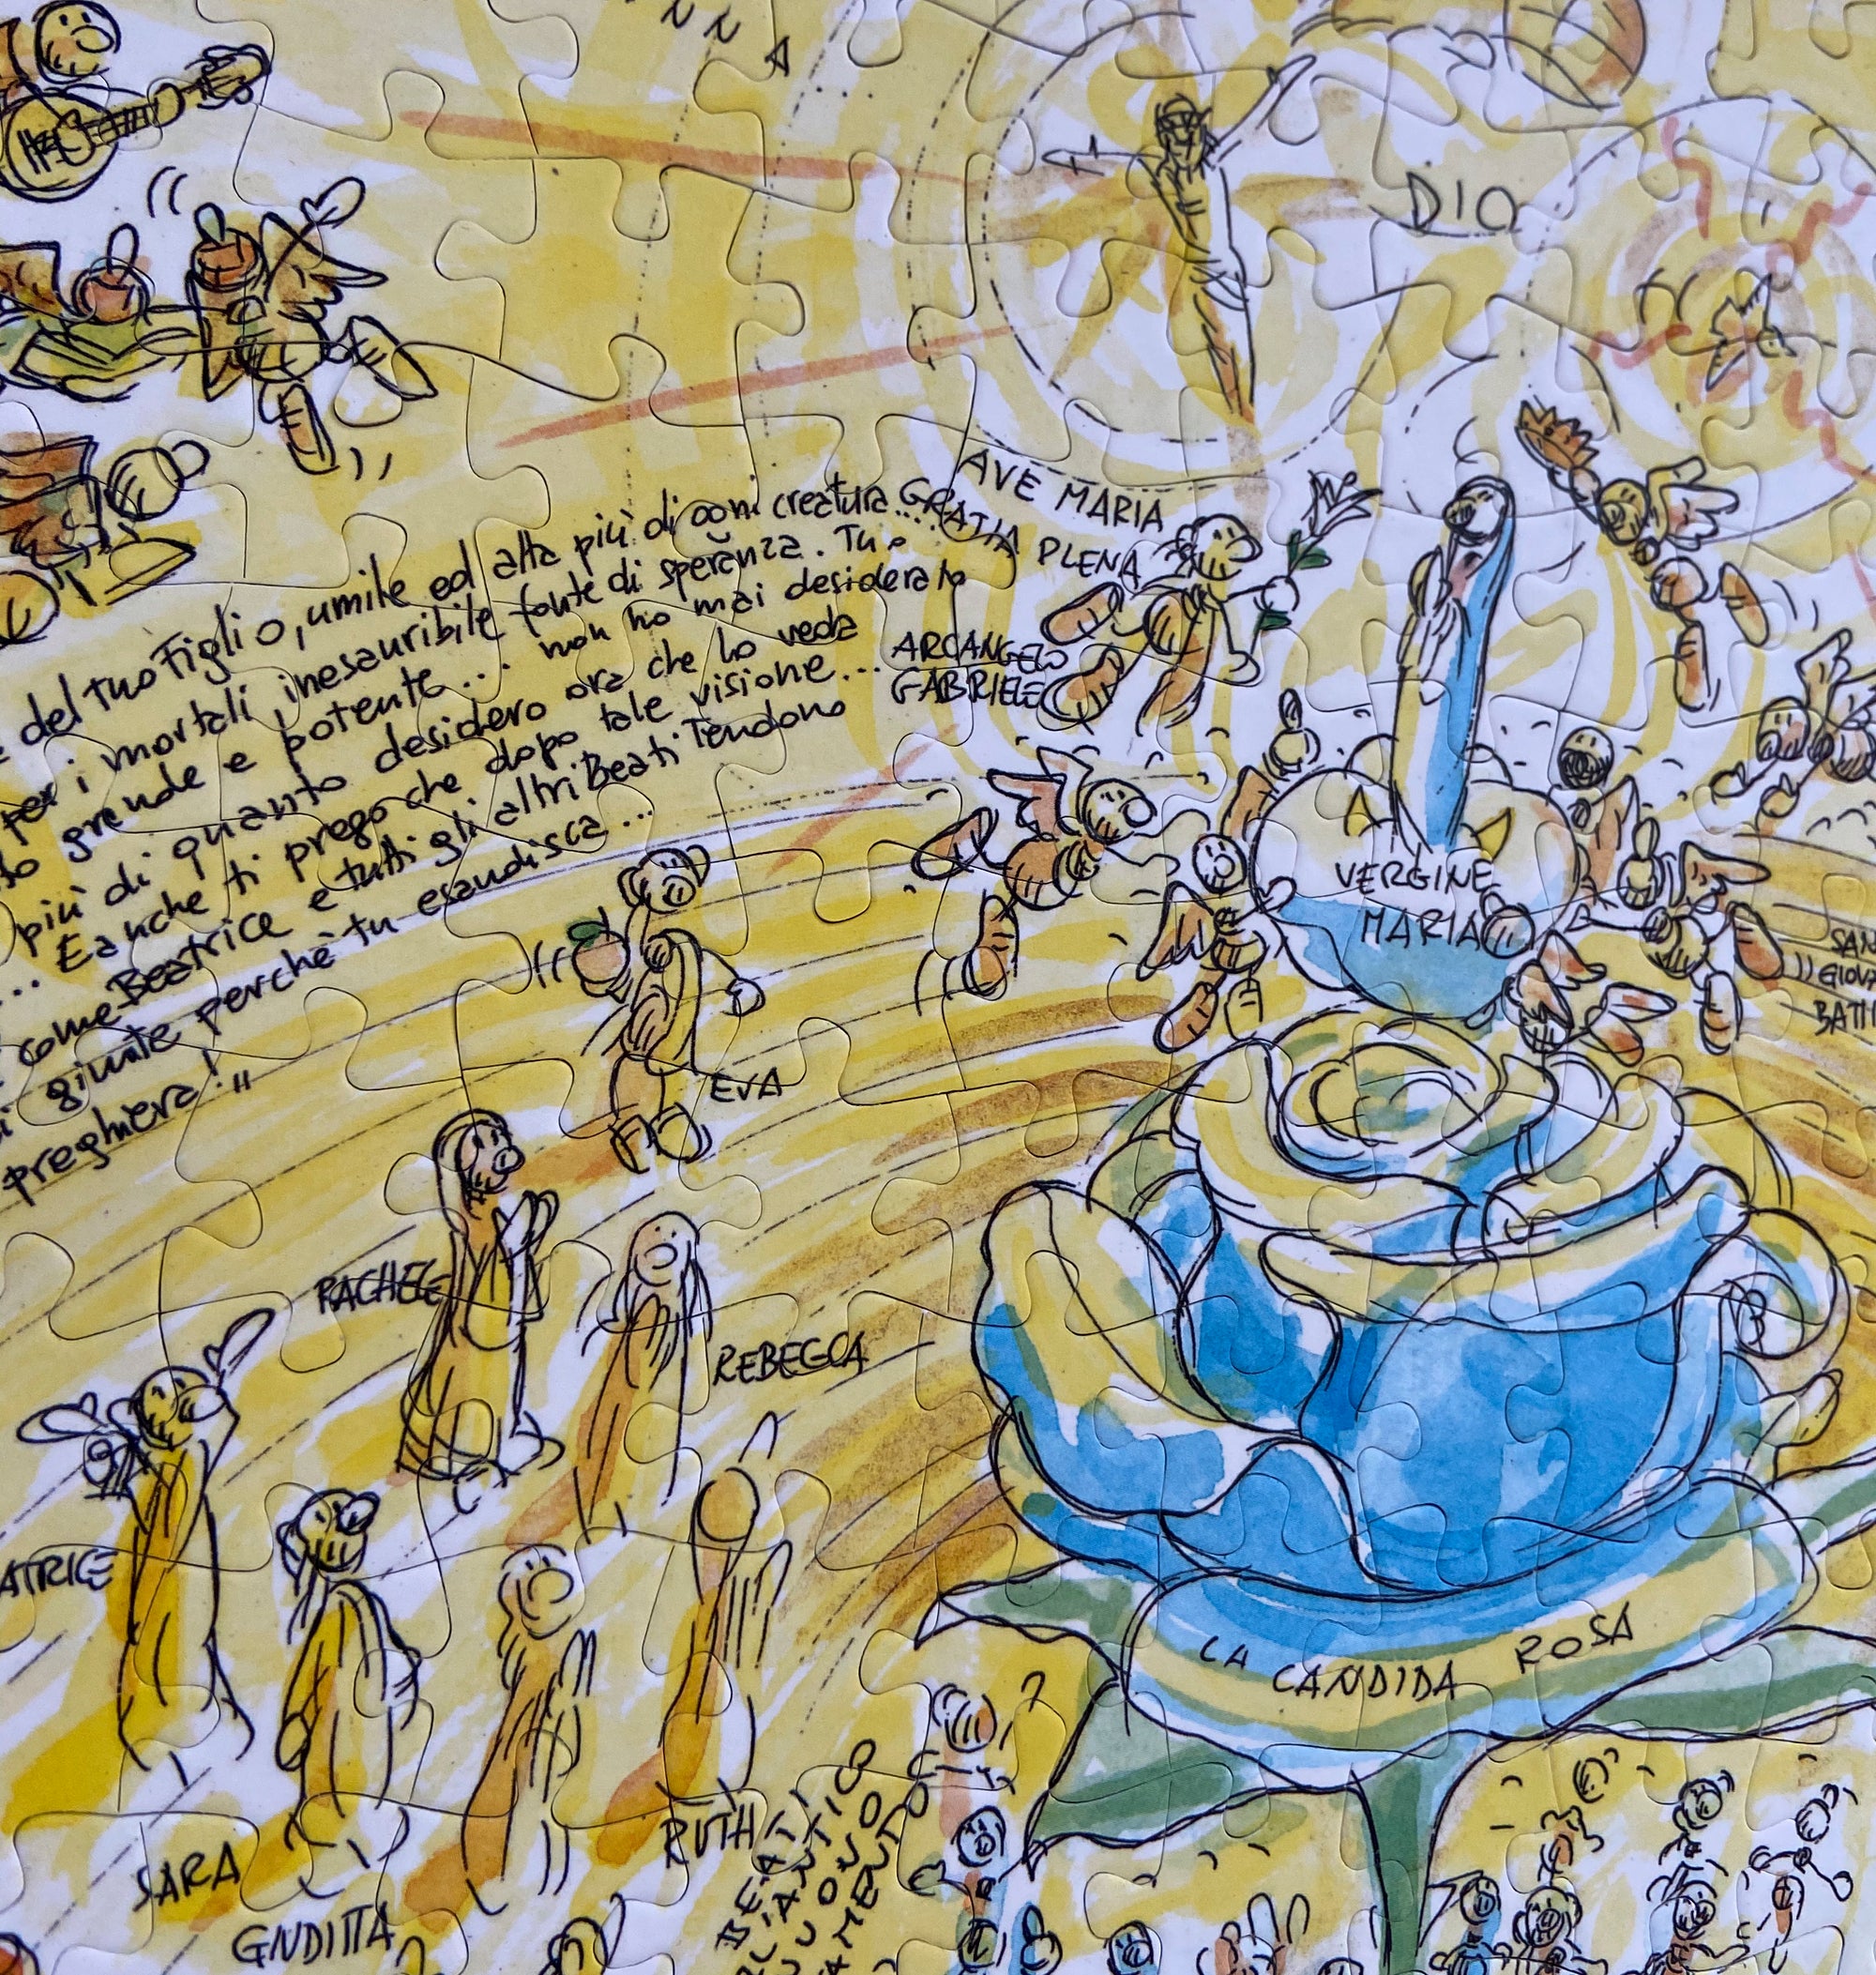 NNA
DIO
AVE MARIA
GRATIA PLENA
del tuo Figlio, umile ed alta più di ogni creatura.....
per i mortali inesauribile fonte di speranza. Tu
grande e potente... non ho mai desiderato
più di quanto desidero ora che lo veda
... E anche ti prego che dopo tale visione...
come Beatrice e tutti gli altri Beati Tendono
giunte perchè tu esaudisca...
preghiera!"
ARCANGELO
GABRIELE
VERGINE
MARIA
SAN
GIOVA
BATTI
EVA
RACHELE
REBECCA
ATRICE
SARA
GIUDITTA
RUTH
BEATI
LA CANDIDA ROSA
?